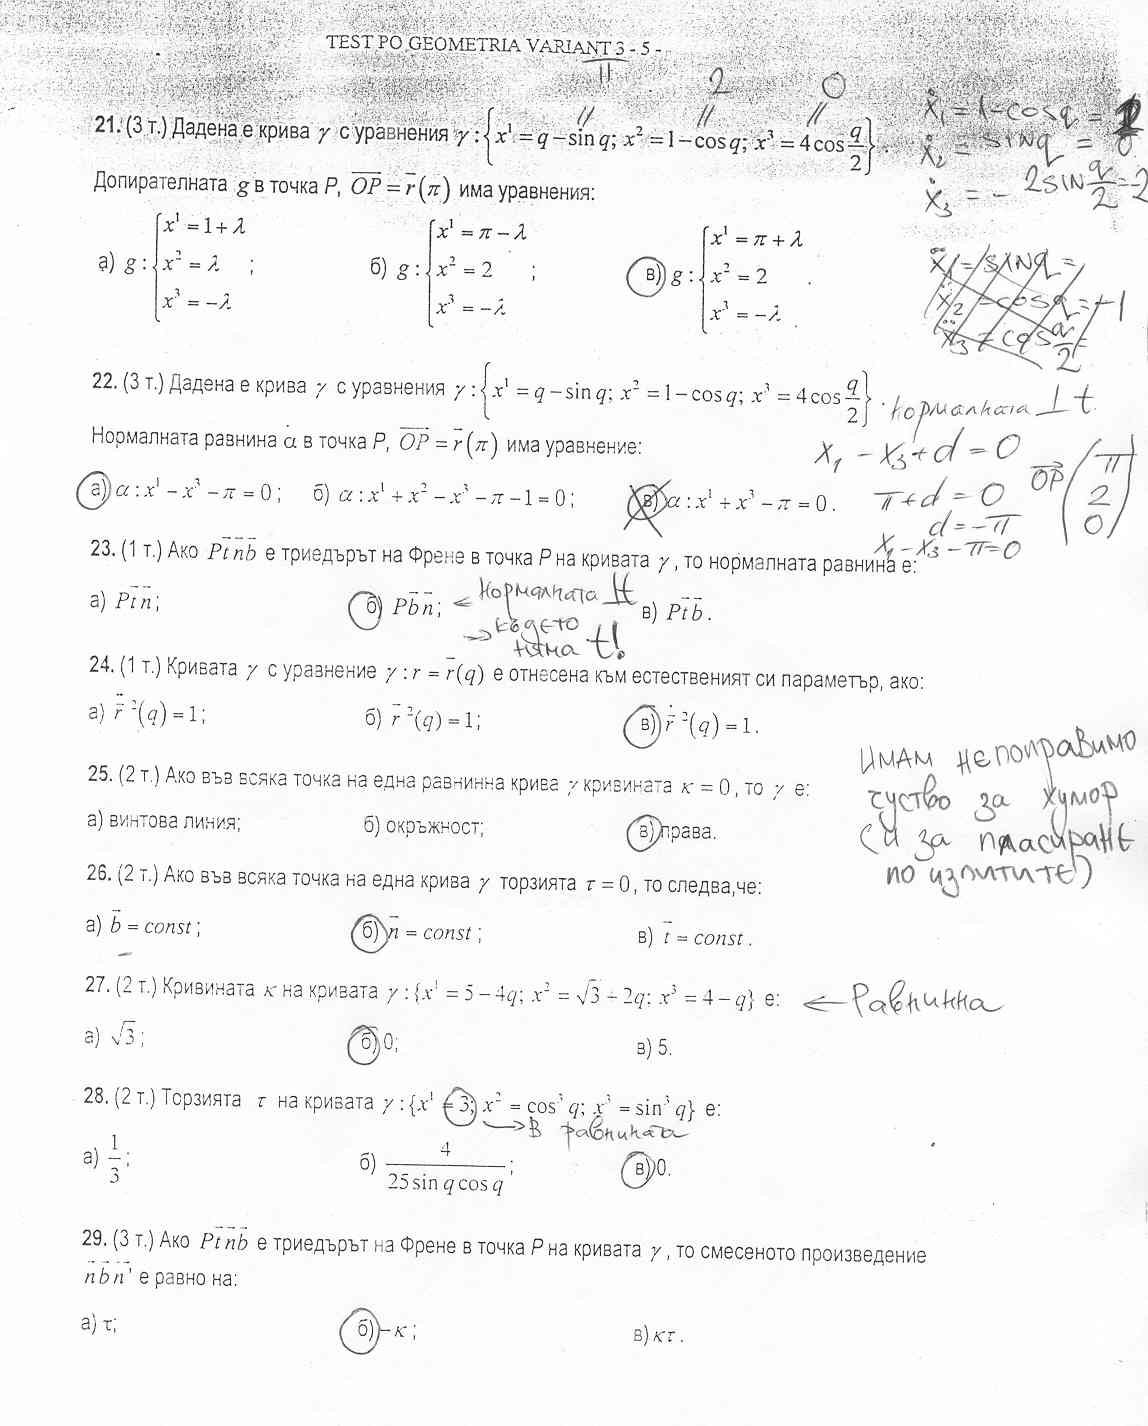 TEST PO GEOMETRIA VARIANT 3 - 5 -
II
2 0
21. (3 т.) Дадена е крива γ с уравнения γ : { x¹ = q − sin q; x² = 1 − cos q; x³ = 4cos q/2 } .
ẋ₁ = 1 - cos q = 2
ẋ₂ = sin q = 0
ẋ₃ = - 2 sin q/2 = -2
Допирателната g в точка P, OP = r(π) има уравнения:
а) g : { x¹ = 1 + λ x² = λ x³ = −λ ; б) g : { x¹ = π − λ x² = 2 x³ = −λ ; в) g : { x¹ = π + λ x² = 2 x³ = −λ .
ẍ₁ = sin q =
ẍ₂ = cos q = -1
ẍ₃ = cos q/2 =
22. (3 т.) Дадена е крива γ с уравнения γ : { x¹ = q − sin q; x² = 1 − cos q; x³ = 4cos q/2 } .
нормалната ⊥ t
Нормалната равнина α в точка P, OP = r(π) има уравнение:
x₁ - x₃ + d = 0
OP ( π 2 0 )
π + d = 0
d = -π
x₁ - x₃ - π = 0
а) α : x¹ − x³ − π = 0 ; б) α : x¹ + x² − x³ − π − 1 = 0 ; в) α : x¹ + x³ − π = 0 .
23. (1 т.) Ако Pt̄n̄b̄ е триедърът на Френе в точка P на кривата γ , то нормалната равнина е:
а) Pt̄n̄ ; б) Pb̄n̄ ; в) Pt̄b̄ .
← нормалната ⊥t
→ където
няма t!
24. (1 т.) Кривата γ с уравнение γ : r = r̄(q) е отнесена към естественият си параметър, ако:
а) r̈ ²(q) = 1 ; б) r̄ ²(q) = 1 ; в) ṙ ²(q) = 1 .
25. (2 т.) Ако във всяка точка на една равнинна крива γ кривината κ = 0 , то γ е:
а) винтова линия; б) окръжност; в) права.
Имам непоправимо
чуство за хумор
(и за пласиране
по изпитите)
26. (2 т.) Ако във всяка точка на една крива γ торзията τ = 0 , то следва,че:
а) b̄ = const ; б) n̄ = const ; в) t̄ = const .
27. (2 т.) Кривината κ на кривата γ : {x¹ = 5 − 4q; x² = √3 + 2q; x³ = 4 − q} е:
← Равнинна
а) √3 ; б) 0; в) 5.
28. (2 т.) Торзията τ на кривата γ : {x¹ = 3; x² = cos³ q; x³ = sin³ q} е:
→ в равнината
а) 1/3 ; б) 4/(25 sin q cos q) ; в) 0.
29. (3 т.) Ако Pt̄n̄b̄ е триедърът на Френе в точка P на кривата γ , то смесеното произведение
n̄ b̄ n̄ ' е равно на:
а) τ; б) −κ ; в) κτ .